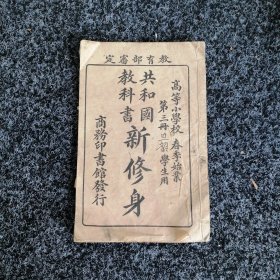 教育部審定
高等小學校 春季始業
第三冊 學生用
共和國
教科書
新修身
商務印書館發行